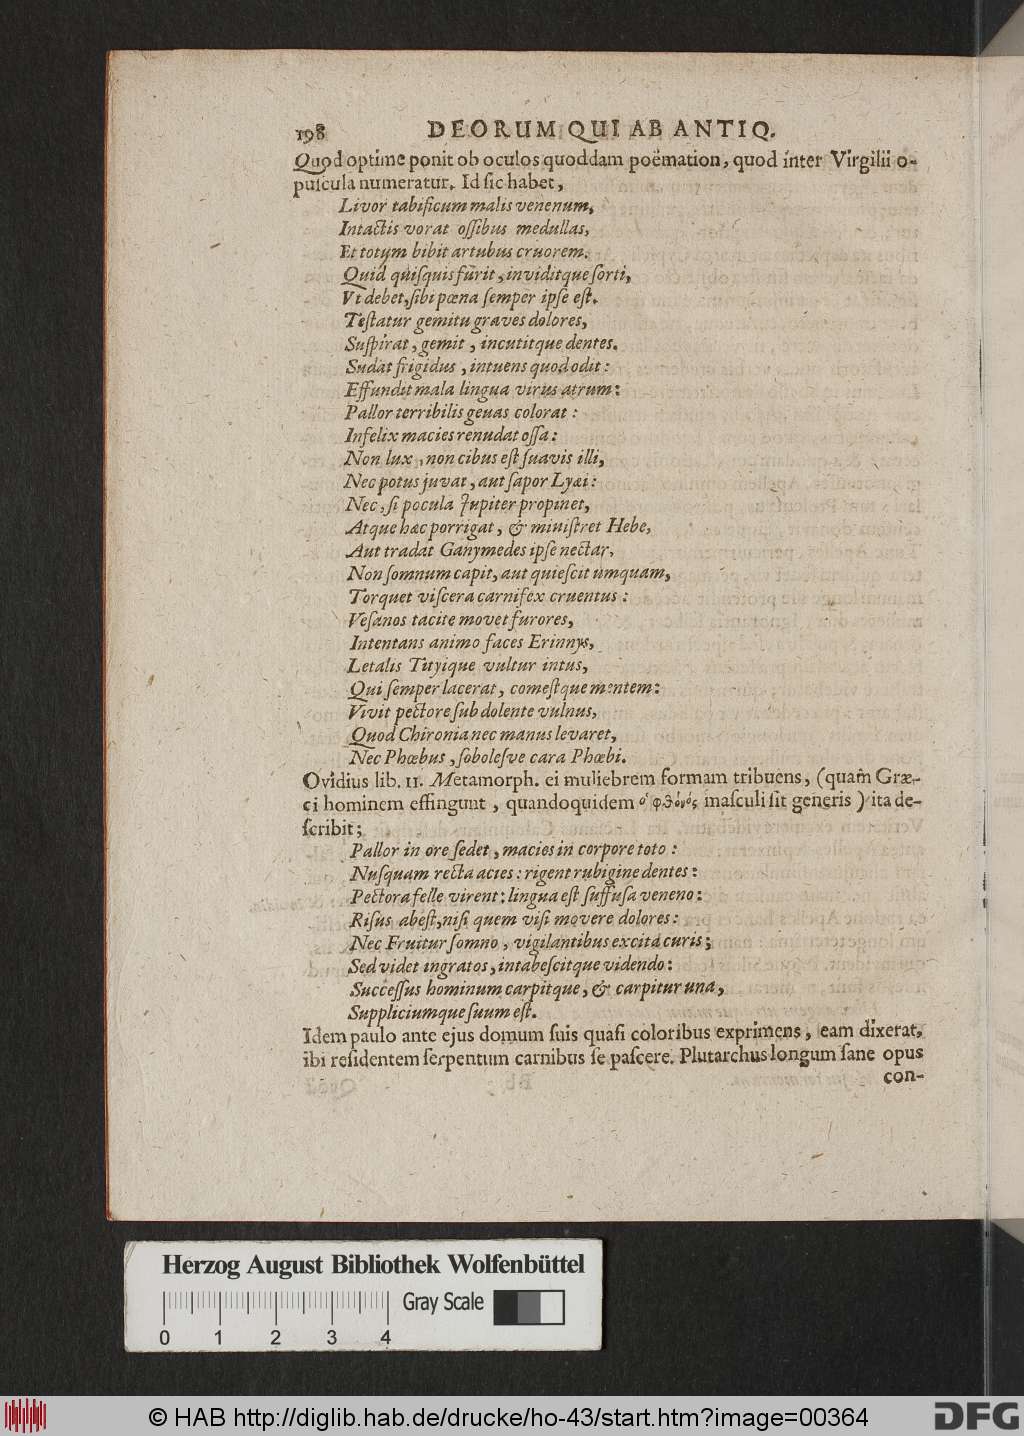 198 DEORUM QUI AB ANTIQ.
Quod optime ponit ob oculos quoddam poëmation, quod inter Virgilii o-
puſcula numeratur. Id ſic habet,
Livor tabificum malis venenum,
Intactis vorat oſſibus medullas,
Et totum bibit artubus cruorem.
Quid quiſquis furit, inviditque ſorti,
Vt debet, ſibi pœna ſemper ipſe eſt.
Teſtatur gemitu graves dolores,
Suſpirat, gemit, incutitque dentes.
Sudat frigidus, intuens quod odit:
Effundit mala lingua virus atrum:
Pallor terribilis genas colorat:
Infelix macies renudat oſſa:
Non lux, non cibus eſt ſuavis illi,
Nec potus juvat, aut ſapor Lyæi:
Nec, ſi pocula Jupiter propinet,
Atque hæc porrigat, & miniſtret Hebe,
Aut tradat Ganymedes ipſe nectar,
Non ſomnum capit, aut quieſcit umquam,
Torquet viſcera carnifex cruentus:
Veſanos tacite movet furores,
Intentans animo faces Erinnys,
Letalis Tityique vultur intus,
Qui ſemper lacerat, comeſtque mentem:
Vivit pectore ſub dolente vulnus,
Quod Chironia nec manus levaret,
Nec Phœbus, ſoboleſve cara Phœbi.
Ovidius lib. 11. Metamorph. ei muliebrem formam tribuens, (quam Græ-
ci hominem effingunt, quandoquidem ὁ φθόνος maſculi ſit generis) ita de-
ſcribit;
Pallor in ore ſedet, macies in corpore toto:
Nuſquam recta acies: rigent rubigine dentes:
Pectora felle virent: lingua eſt ſuffuſa veneno:
Riſus abeſt, niſi quem viſi movere dolores:
Nec Fruitur ſomno, vigilantibus excita curis;
Sed videt ingratos, intabeſcitque videndo:
Succeſſus hominum carpitque, & carpitur una,
Suppliciumque ſuum eſt.
Idem paulo ante ejus domum ſuis quaſi coloribus exprimens, eam dixerat,
ibi reſidentem ſerpentum carnibus ſe paſcere. Plutarchus longum ſane opus
con-
Herzog August Bibliothek Wolfenbüttel
Gray Scale
0 1 2 3 4
© HAB http://diglib.hab.de/drucke/ho-43/start.htm?image=00364
DFG